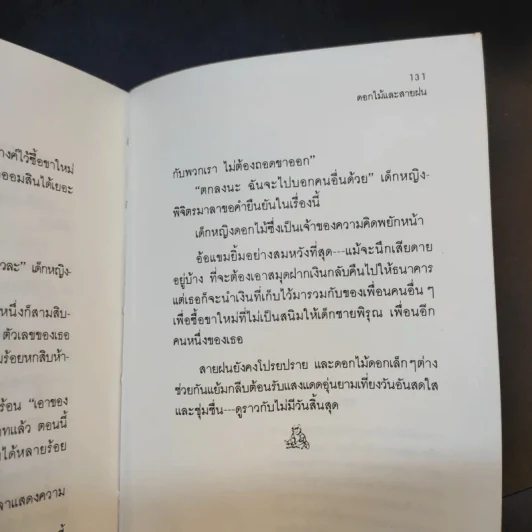 งค์ไว้ซื้อขาใหม่
ออมสินได้เยอะ
วละ” เด็กหญิง-
หนึ่งก็สามสิบ-
ตัวเลขของเธอ
ร้อยหกสิบห้า-
ร้อน “เอาของ
าทแล้ว ตอนนี้
ได้หลายร้อย
าแสดงความ
131
ดอกไม้และสายฝน
กับพวกเรา ไม่ต้องถอดขาออก”
“ตกลงนะ ฉันจะไปบอกคนอื่นด้วย” เด็กหญิง-
พิจิตรมาลาขอคำยืนยันในเรื่องนี้
เด็กหญิงดอกไม้ซึ่งเป็นเจ้าของความคิดพยักหน้า
อ้อแขมยิ้มอย่างสมหวังที่สุด---แม้จะนึกเสียดาย
อยู่บ้าง ที่จะต้องเอาสมุดฝากเงินกลับคืนไปให้ธนาคาร
แต่เธอก็จะนำเงินที่เก็บไว้มารวมกับของเพื่อนคนอื่น ๆ
เพื่อซื้อขาใหม่ที่ไม่เป็นสนิมให้เด็กชายพิรุณ เพื่อนอีก
คนหนึ่งของเธอ
สายฝนยังคงโปรยปราย และดอกไม้ดอกเล็กๆต่าง
ช่วยกันแย้มกลีบต้อนรับแสงแดดอุ่นยามเที่ยงวันอันสดใส
และชุ่มชื่น---ดูราวกับไม่มีวันสิ้นสุด